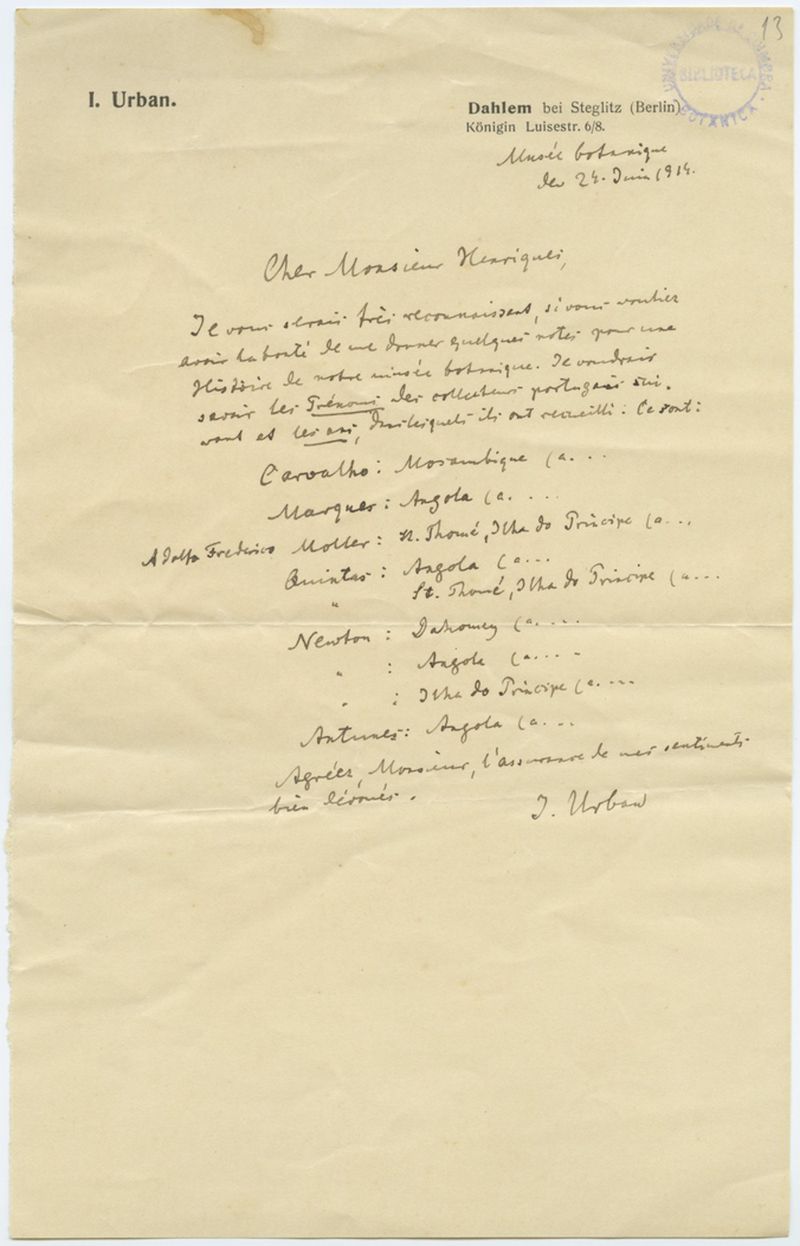 13
UNIVERSIDADE DE COIMBRA
BIBLIOTECA
BOTANICA
I. Urban.
Dahlem bei Steglitz (Berlin)
Königin Luisestr. 6/8.
Musée botanique
den 24. Juin 1914.
Cher Monsieur Henriques,
Je vous serais très reconnaissant, si vous vouliez
avoir la bonté de me donner quelques notes pour une
Histoire de notre musée botanique. Je voudrais
savoir les Prénoms des collecteurs portugais sui-
vant et les ans, dans lesquels ils ont recueilli: Ce sont:
Carvalho: Mosambique (a. . .
Marques: Angola (a. . .
Adolfo Frederico Moller: St. Thomé, Ilha do Principe (a. . .
Quintas: Angola (a. . .
" St. Thomé, Ilha do Principe (a. . .
Newton: Dahomey (a. . . .
" : Angola (a. . . .
" : Ilha do Principe (a. . . .
Antunes: Angola (a. . .
Agréez, Monsieur, l'assurance de mes sentiments
bien dévoués.
I. Urban